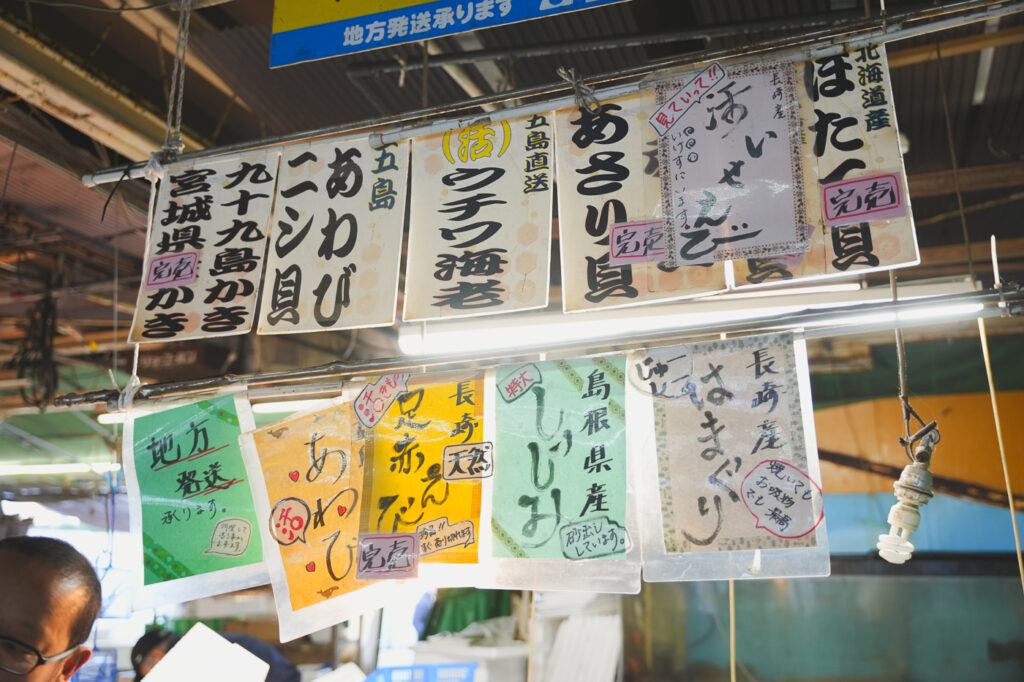 地方発送承ります
宮城県かき
完売
九十九島かき
ニシ貝
あわび
五島
(活)
ウチワ海老
五島直送
あさり貝
完売
見ていって!!
いけすにいます
活いせえび
長崎産
ほたて貝
完売
北海道産
地方
発送
承ります。
あわび
活
長崎
天然
足赤えび
活きもし
完売
特大
島根県産
しじみ
砂出し
しています。
長崎産
はまぐり
焼いても
お吸物